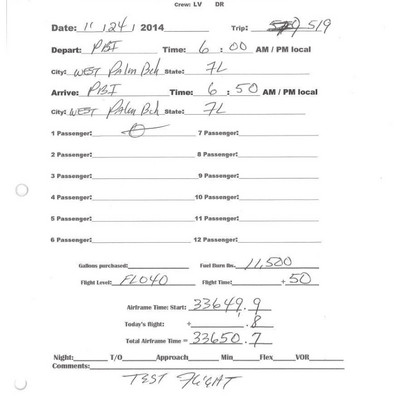 Crew: LV DR
Date: 11 / 24 / 2014 Trip: 519
Depart: PBI Time: 6 : 00 AM / PM local
City: WEST Palm Bch State: FL
Arrive: PBI Time: 6 : 50 AM / PM local
City: WEST Palm Bch State: FL
1 Passenger: 0 7 Passenger:
2 Passenger: 8 Passenger:
3 Passenger: 9 Passenger:
4 Passenger: 10 Passenger:
5 Passenger: 11 Passenger:
6 Passenger: 12 Passenger:
Gallons purchased: Fuel Burn lbs. 11,500
Flight Level: FL040 Flight Time: + 50
Airframe Time: Start: 33649.9
Today's flight: + .8
Total Airframe Time = 33650.7
Night: T/O Approach Min Flex VOR
Comments:
TEST FLIGHT